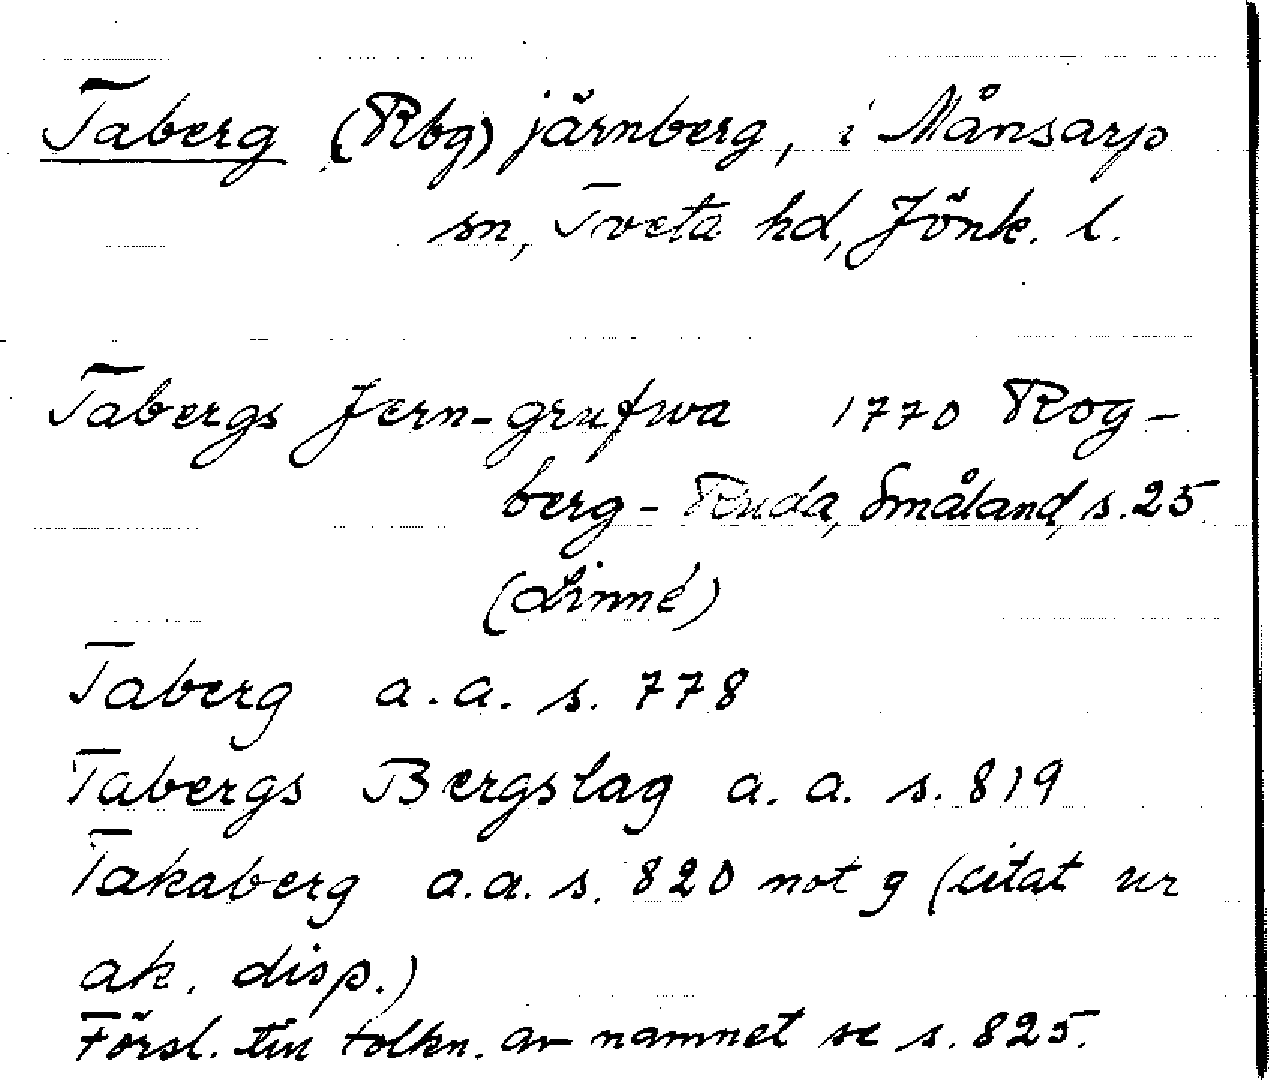 Taberg (Rbg) järnberg, i Månsarp
sn, Tveta hd, Jönk. l.
Tabergs Jern-grufwa 1770 Rog-
berg - Ruda, Småland, s. 25
(Linné)
Taberg a.a. s. 778
Tabergs Bergslag a. a. s. 819
Takaberg a.a. s. 820 not g (citat ur
ak. disp.)
Försl. till tolkn. av namnet se s. 825.